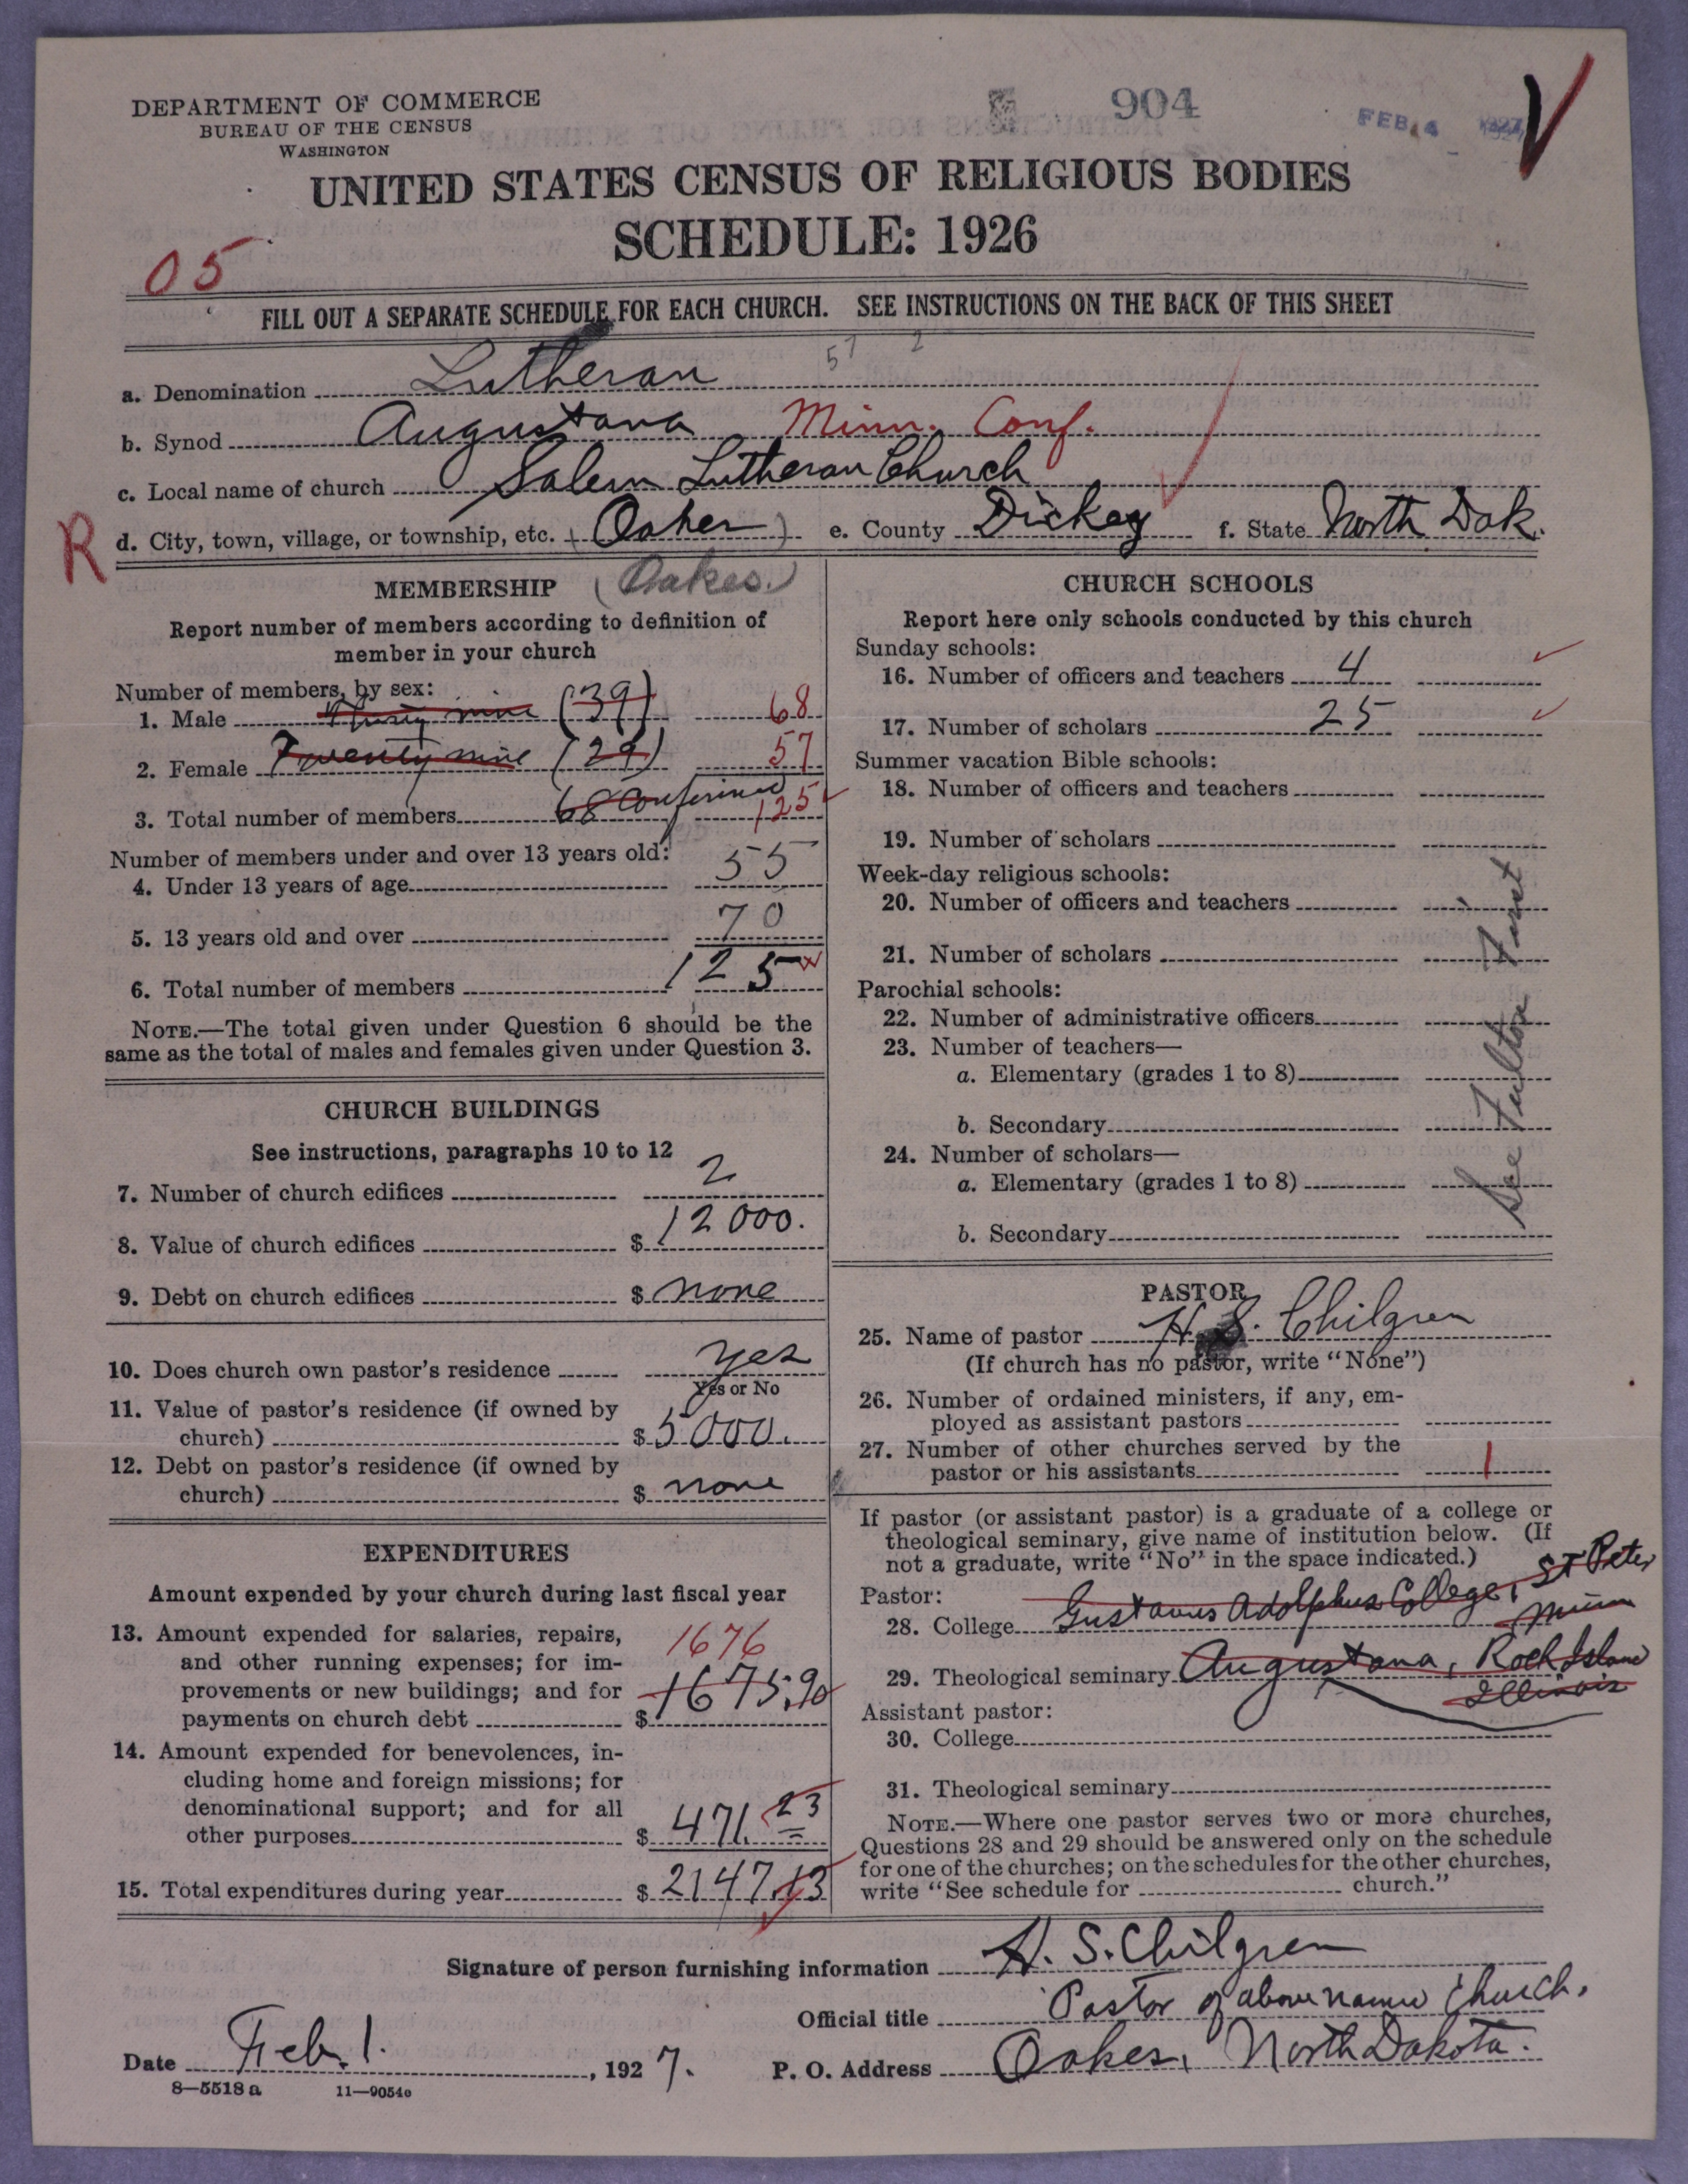 DEPARTMENT OF COMMERCE
BUREAU OF THE CENSUS
WASHINGTON
904
FEB 4 1927
UNITED STATES CENSUS OF RELIGIOUS BODIES
SCHEDULE: 1926
05
FILL OUT A SEPARATE SCHEDULE FOR EACH CHURCH. SEE INSTRUCTIONS ON THE BACK OF THIS SHEET
57 2
a. Denomination Lutheran
b. Synod Augustana Minn. Conf.
c. Local name of church Salem Lutheran Church
R d. City, town, village, or township, etc. (Oakes) e. County Dickey f. State North Dak.
(Oakes.)
MEMBERSHIP
Report number of members according to definition of
member in your church
Number of members, by sex:
1. Male Thirty nine (39) 68
2. Female Twenty nine (29) 57
3. Total number of members 68 Confirmed 125
Number of members under and over 13 years old:
4. Under 13 years of age 55
5. 13 years old and over 70
6. Total number of members 125
NOTE.—The total given under Question 6 should be the
same as the total of males and females given under Question 3.
CHURCH BUILDINGS
See instructions, paragraphs 10 to 12
7. Number of church edifices 2
8. Value of church edifices $ 12000.
9. Debt on church edifices $ none
10. Does church own pastor's residence yes
Yes or No
11. Value of pastor's residence (if owned by
church) $ 5000.
12. Debt on pastor's residence (if owned by
church) $ none
EXPENDITURES
Amount expended by your church during last fiscal year
13. Amount expended for salaries, repairs,
and other running expenses; for im-
provements or new buildings; and for
payments on church debt $ 1675.90
1676
14. Amount expended for benevolences, in-
cluding home and foreign missions; for
denominational support; and for all
other purposes $ 471.23
15. Total expenditures during year $ 2147.13
CHURCH SCHOOLS
Report here only schools conducted by this church
Sunday schools:
16. Number of officers and teachers 4
17. Number of scholars 25
Summer vacation Bible schools:
18. Number of officers and teachers
19. Number of scholars
Week-day religious schools:
20. Number of officers and teachers
21. Number of scholars
Parochial schools:
22. Number of administrative officers
23. Number of teachers—
a. Elementary (grades 1 to 8)
b. Secondary
24. Number of scholars—
a. Elementary (grades 1 to 8)
b. Secondary
See Fullton First
PASTOR
25. Name of pastor H. S. Chilgren
(If church has no pastor, write "None")
26. Number of ordained ministers, if any, em-
ployed as assistant pastors
27. Number of other churches served by the
pastor or his assistants 1
If pastor (or assistant pastor) is a graduate of a college or
theological seminary, give name of institution below. (If
not a graduate, write "No" in the space indicated.)
Pastor:
28. College Gustavus Adolphus College, St Peter
Minn
29. Theological seminary Augustana, Rock Island
Illinois
Assistant pastor:
30. College
31. Theological seminary
NOTE.—Where one pastor serves two or more churches,
Questions 28 and 29 should be answered only on the schedule
for one of the churches; on the schedules for the other churches,
write "See schedule for church."
Signature of person furnishing information H. S. Chilgren
Official title Pastor of above name church.
Date Feb. 1. , 1927. P. O. Address Oakes, North Dakota.
8—5518 a 11—9054o